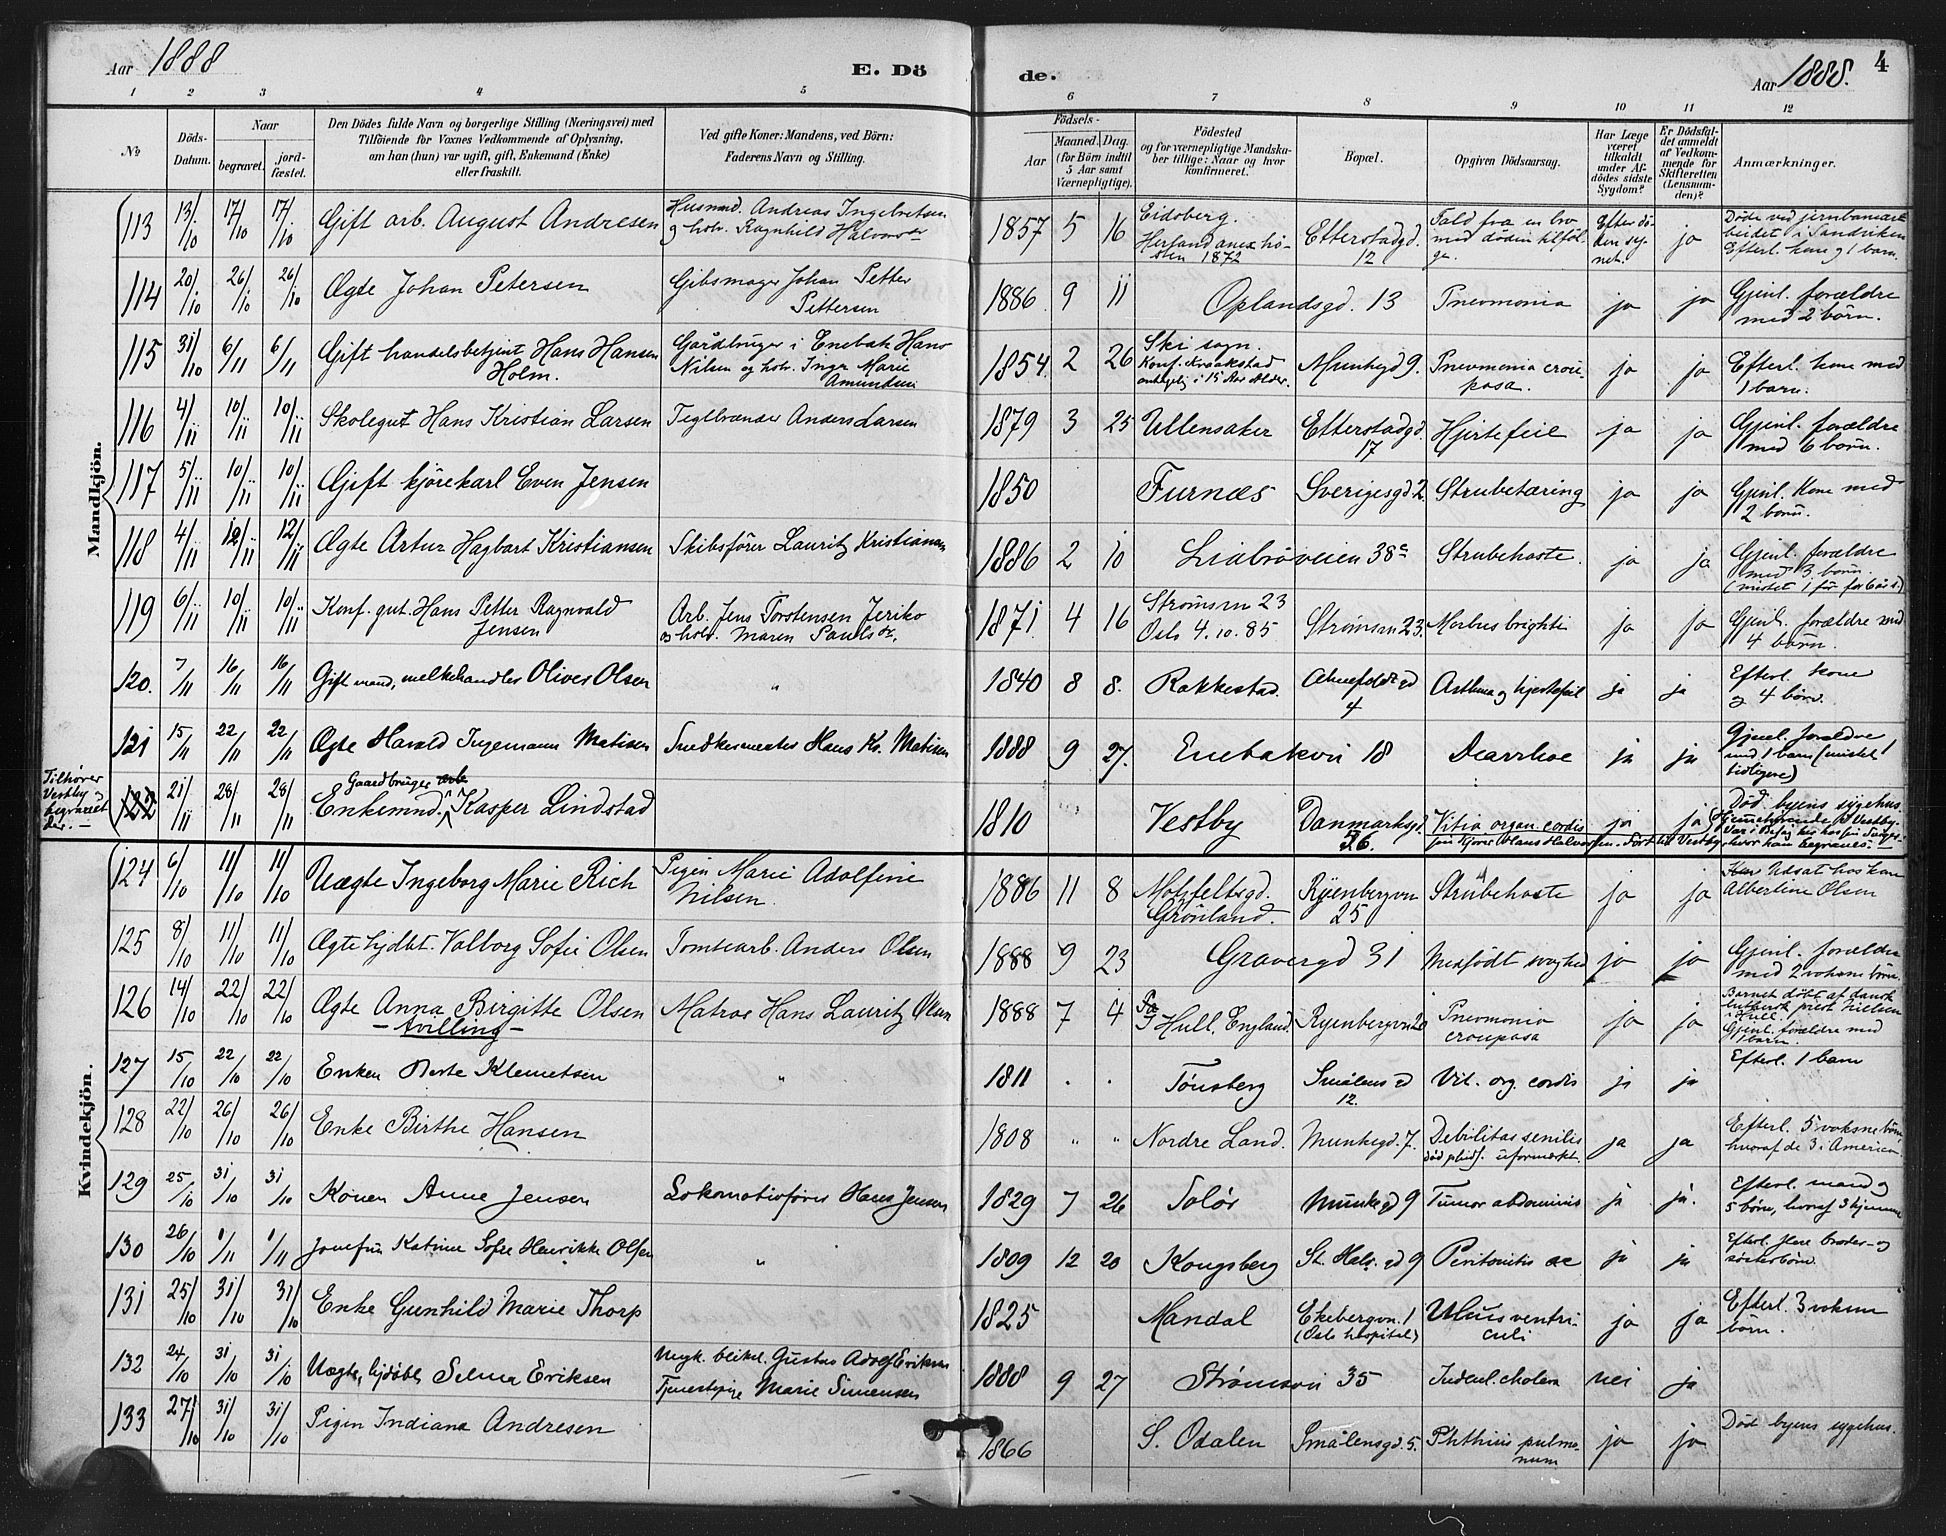 Aar 1888
E. Dö
de.
Aar 1888.
4
1 2 3 4 5 6 7 8 9 10 11 12
№
Döds-Datum.
Naar
begravet.
jord-fæstet.
Den Dödes fulde Navn og borgerlige Stilling (Næringsvei) med
Tilföiende for Voxnes Vedkommende af Oplysning,
om han (hun) var ugift, gift, Enkemand (Enke)
eller fraskilt.
Ved gifte Koner: Mandens, ved Börn:
Faderens Navn og Stilling.
Födsels-
Aar
Maaned. Dag.
(for Börn indtil
5 Aar samt
Værnepligtige).
Födested
og for værnepligtige Mandska-
ber tillige: Naar og hvor
konfirmeret.
Bopæl.
Opgiven Dödsaarsag.
Har Læge
været
tilkaldt
under Af-
dödes sidste
Sygdom?
Er Dödsfal-
det anmeldt
af Vedkom-
mende for
Skifteretten
(Lensman-
den)?
Anmærkninger.
Mandkjön.
113 13/10 17/10 17/10 Gift arb. August Andresen Husmd. Andreas Ingebretsen 1857 5 16 Eidsberg. Etterstadgd. 12 Fald fra en bro Efter dö- ja Döde ved jernbanear-
og hstr. Ragnhild Halvorsdr Herland anex hö- med döden tilföl- den sy- beidet i Sandviken
sten 1872 ge. net. Efterl. kone og 1 barn.
114 20/10 26/10 26/10 Ægte Johan Petersen Gibsmager Johan Petter 1886 9 11 Oplandsgd. 13 Pnevmonia ja ja Gjenl. forældre
Pettersen med 2 börn.
115 31/10 6/11 6/11 Gift handelsbetjent Hans Hansen Gårdbruger i Enebak Hans 1854 2 26 Ski sogn. Munkegd 9. Pnevmonia crou- ja ja Efterl. kone med
Holm. Nilsen og hstr. Inger Marie Konf. Kraakstad posa. 1 barn.
Amundsen antagelig i 15 Aars Alder.
116 4/11 10/11 10/11 Skolegut Hans Kristian Larsen Teglbrænder Anders Larsen 1879 3 25 Ullensaker Etterstadgd. 17 Hjertefeil ja ja Gjenl. forældre
med 6 börn.
117 5/11 10/11 10/11 Gift kjörekarl Even Jensen 1850 Furnæs Sverigesgd 2 Strubetæring ja ja Gjenl. Kone med
2 börn.
118 4/11 12/11 12/11 Ægte Artur Hagbart Kristiansen Skibsförer Lauritz Kristiansen 1886 2 10 Liabröveien 38c Strubehoste. ja ja Gjenl. forældre
med 3 börn
(mistet 1 för for 6 år s.)
119 6/11 10/11 10/11 Konf. gut. Hans Petter Ragnvald Arb. Jens Torstensen Jeriko 1871 4 16 Strömsvn 23 Strömsvn 23. Morbus brighti ja ja Gjenl. forældre med
Jensen og hstr. Maren Paulsdr. Oslo 4.10.85 4 börn.
120. 7/11 16/11 16/11 Gift mand, melkehandler Oliver Olsen " 1840 8 8. Rakkestad. Ahnefeldtsgd 4 Asthma og hjertefeil ja ja Efterl. kone
og 4 börn.
121 15/11 22/11 22/11 Ægte Harald Ingemann Matisen Snedkermester Hans Kr. Matisen 1888 9 27. Enebakvn 18 Dearrhoe ja ja Gjenl. foreldre
med 1 barn (mistet 1
tidligere)
Tilhörer
Vestby og
begravet
der. —
122 21/11 28/11 28/11 Gaardbruger arb
Enkemnd. Kasper Lindstad 1810 " Vestby Danmarksgd. 36. Vitia organ. cordis ja ja Död byens sygehus.
Hjemmehörende på Vestby.
Kvindekjön.
124 6/10 11/10 11/10 Uægte Ingeborg Marie Rich Pigen Marie Adolfine 1886 11 8 Motzfeltsgd. Ryenbergvn 25 Strubehoste ja ja Udsat hos kone
Nilsen. Grönland. Albertine Olsen
125 8/10 11/10 11/10 Ægte hjdbt. Valborg Sofie Olsen Tomtearb. Anders Olsen 1888 9 23 Gravergd 31 Medfödt svaghed ja ja Gjenl. forældre
med 2 voksne börn.
126 14/10 22/10 22/10 Ægte Anna Birgitte Olsen Matros Hans Lauritz Olsen 1888 7 4 I Hull, England. Ryenbergvn 20 Pnevmonia ja ja Barnet döbt af dansk
— tvilling — croupasa luthersk præst Nielsen
i Hull.
Gjenl. forældre med
1 barn.
127 15/10 22/10 22/10 Enken Berte Klemetsen " 1811 . . Tönsberg Smålensgd 12. Vit. org. cordis ja ja Efterl. 1 barn
128 22/10 26/10 26/10 Enke Birthe Hansen 1808 " " Nordre Land. Munkegd. 7. Debilitas senilis ja ja Efterl. 5 voksne börn
död pludsl. uformærkt. hvoraf de 3 i Amerika
129 25/10 31/10 31/10 Konen Anne Jensen Lokomotivförer Hans Jensen 1829 7 26 Solör Munkegd 9 Tumor abdominis ja ja. Efterl. mand og
5 börn, hvoraf 3 hjemme
130 26/10 1/11 1/11 Jomfru Katrine Sofie Henrikke Olsen " 1809 12 20 Kongsberg St. Halv. gd 9 Peritonitis ac ja ja Efterl. flere broder- og
sösterbörn.
131 25/10 31/10 31/10 Enke Gunhild Marie Thorp 1825 Mandal Ekebergvn. 1 Ulcus ventri- ja ja Efterl. 3 voksne
(Oslo hospital) culi börn.
132 24/10 31/10 31/10 Uægte, hjdöbt Selma Eriksen Ungk. blikel. Gustav Adolf Eriksen 1888 9 27 Strömsvn 35 Indenl. cholera nei ja
Tjenestepige Marie Simensen
133 27/10 31/10 31/10 Pigen Indiana Andresen 1866 S. Odalen Smålensgd. 5. Phthisis pulmo- ja ja Död byens sygehus.
num